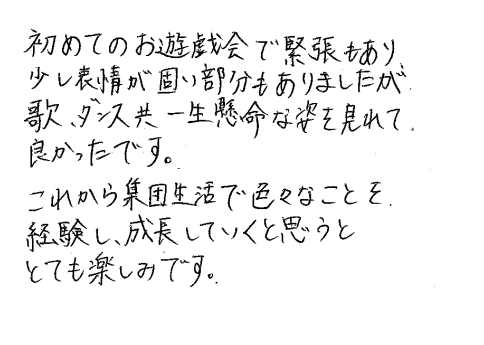 初めてのお遊戯会で緊張もあり、
少し表情が固い部分もありましたが、
歌、ダンス共一生懸命な姿を見れて
良かったです。
これから集団生活で色々なことを
経験し、成長していくと思うと
とても楽しみです。